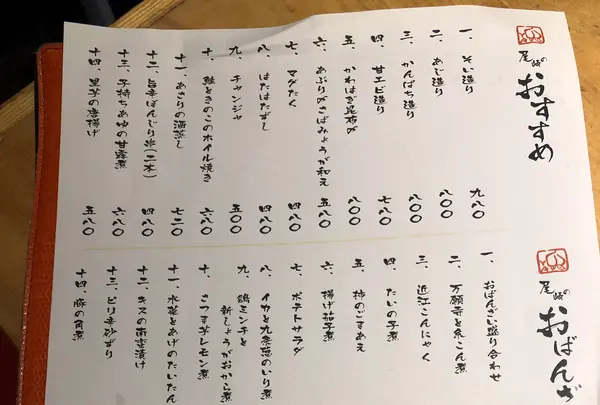 尾崎の
おすすめ
一、そい造り 九八〇
二、あじ造り 八〇〇
三、かんぱち造り 八〇〇
四、甘エビ造り 七八〇
五、かわはぎ昆布〆 八〇〇
六、あぶり〆さばみょうが和え 五八〇
七、マグたく 四八〇
八、はたはたずし 四八〇
九、チャンジャ 五〇〇
十、鮭ときのこのホイル焼き 六八〇
十一、あさりの酒蒸し 七二〇
十二、旨辛ぼんじり串(二本) 四八〇
十三、子持ちあゆの甘露煮 六八〇
十四、里芋の唐揚げ 五八〇
尾崎の
おばんざ
一、おばんざい盛り合わせ
二、万願寺と糸こん煮
三、近江こんにゃく
四、たいの子煮
五、柿のごまあえ
六、揚げ茄子煮
七、ポテトサラダ
八、イカと九条葱のいり煮
九、鶏ミンチと
新しょうがおから煮
十、さつま芋レモン煮
十一、水菜とあげのたいたん
十二、キスの南蛮漬け
十三、ピリ辛砂ずり
十四、豚の角煮